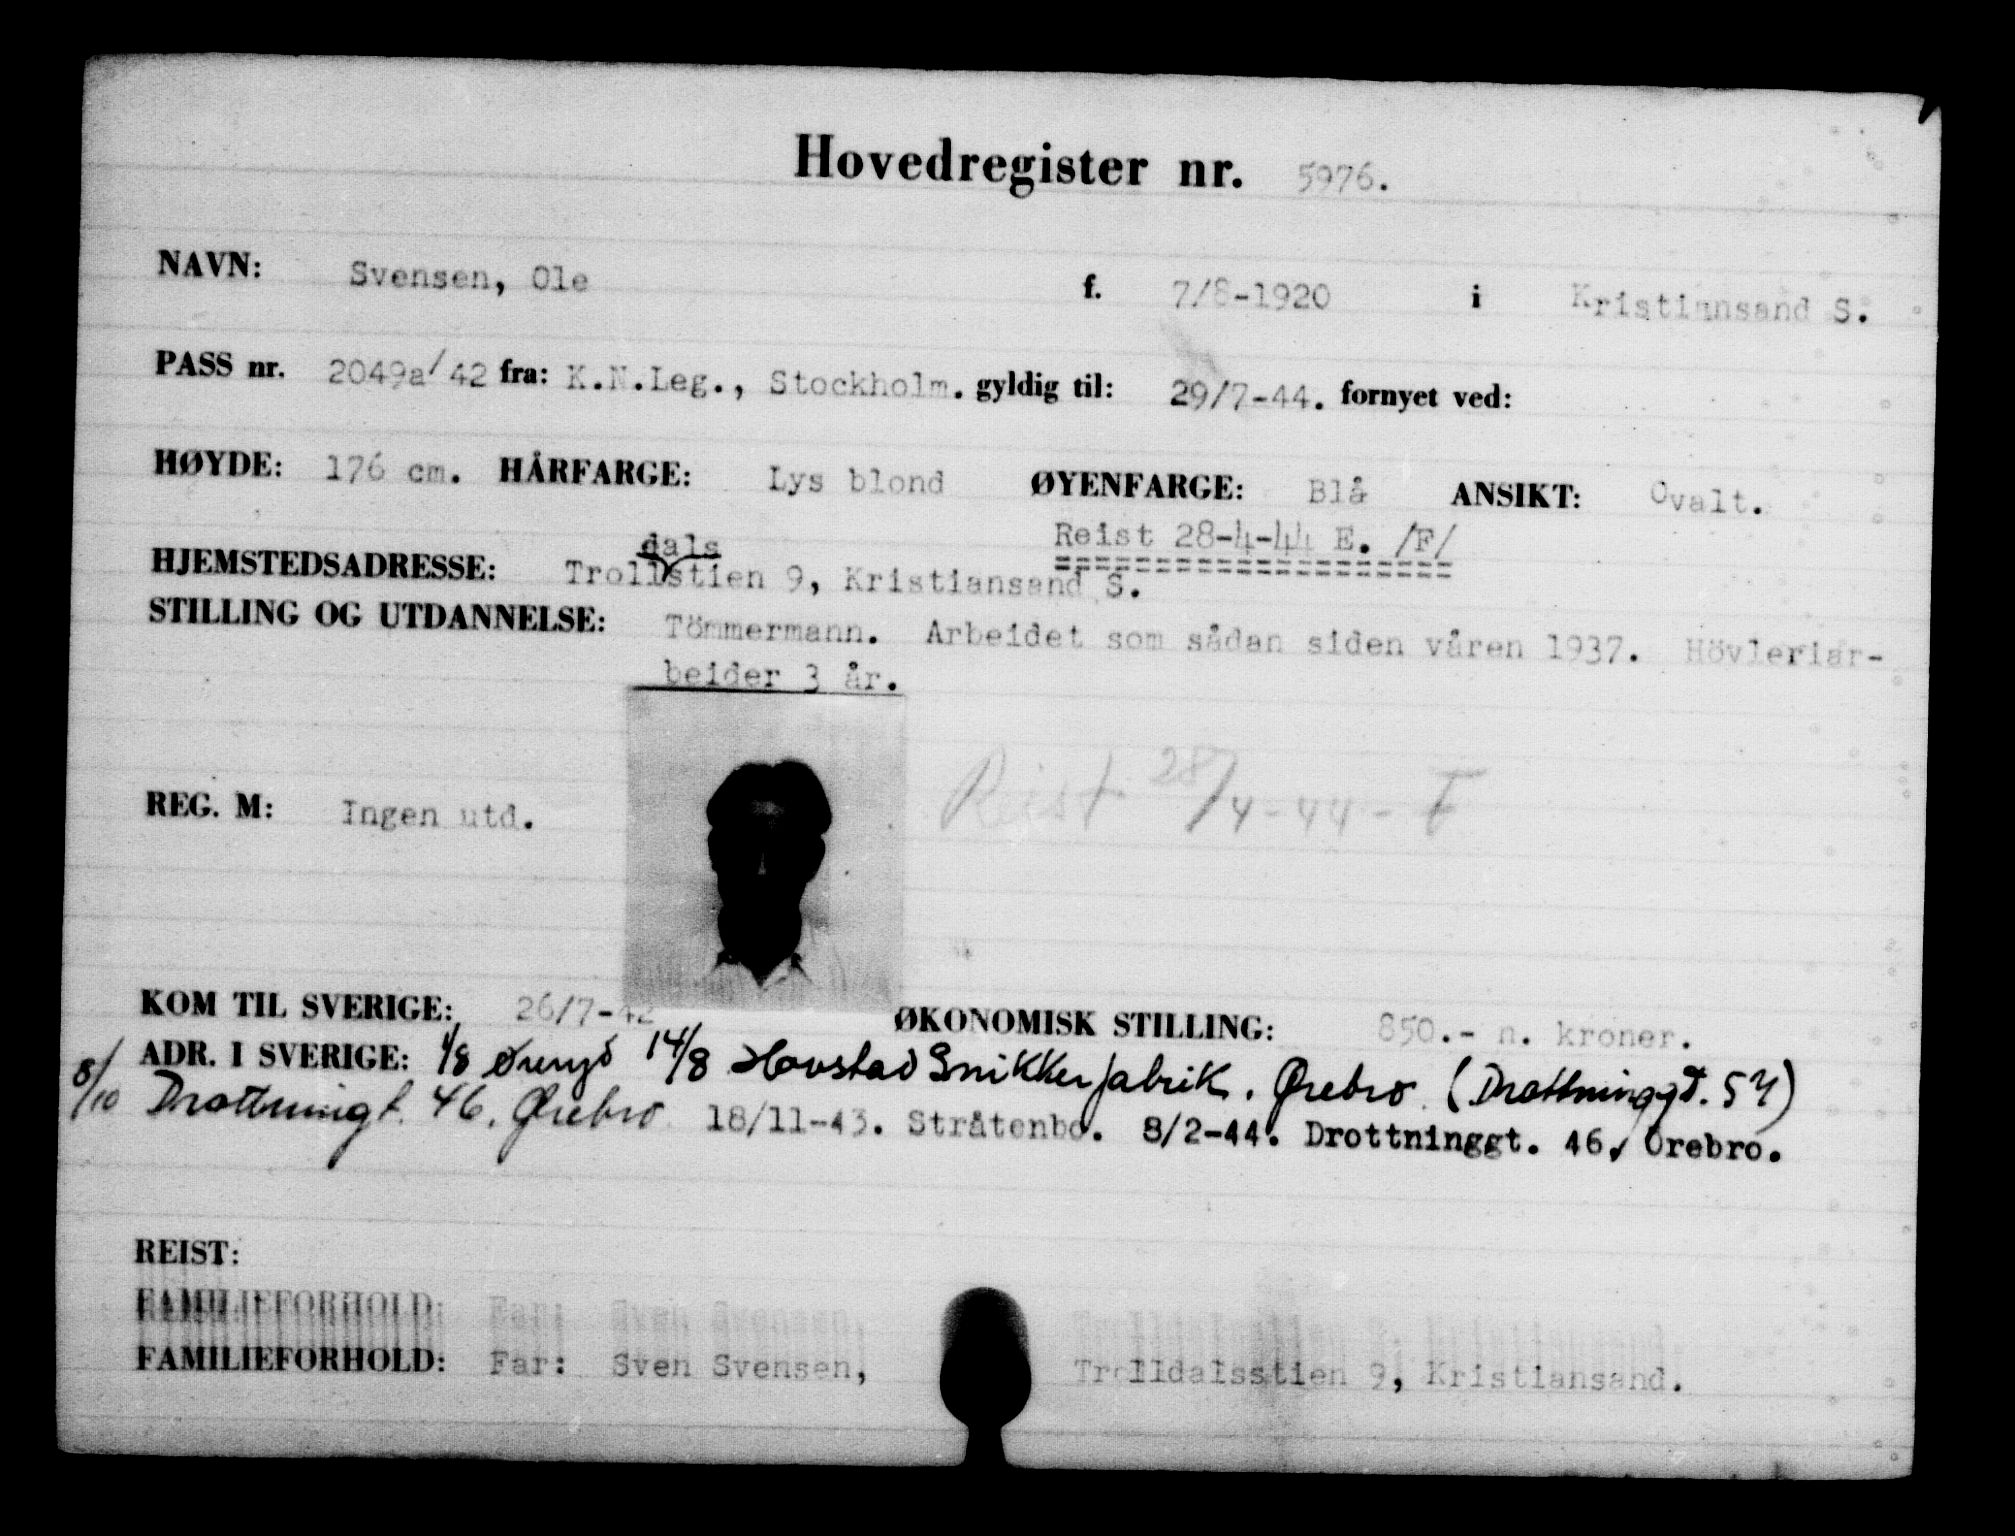 Hovedregister nr. 5976.
NAVN: Svensen, Ole f. 7/8-1920 i Kristiansand S.
PASS nr. 2049a/42 fra: K.N.Leg., Stockholm. gyldig til: 29/7-44. fornyet ved:
HØYDE: 176 cm. HÅRFARGE: Lys blond ØYENFARGE: Blå ANSIKT: Ovalt.
Reist 28-4-44 E. /F/
dals
HJEMSTEDSADRESSE: Trollstien 9, Kristiansand S.
STILLING OG UTDANNELSE: Tömmermann. Arbeidet som sådan siden våren 1937. Hövleriar-
beider 3 år.
Reist 28/4-44 - F
REG. M: Ingen utd.
KOM TIL SVERIGE: 26/7-42 ØKONOMISK STILLING: 850.- n. kroner.
ADR. I SVERIGE: 1/8 Öreryd 14/8 Hovstad Snikkerfabrik. Ørebro. (Drottninggt. 54)
8/10 Drottninggt. 46. Ørebro 18/11-43. Stråtenbo. 8/2-44. Drottninggt. 46, Örebro.
REIST:
FAMILIEFORHOLD: Far: Sven Svensen,
FAMILIEFORHOLD: Far: Sven Svensen, Trolldalsstien 9, Kristiansand.